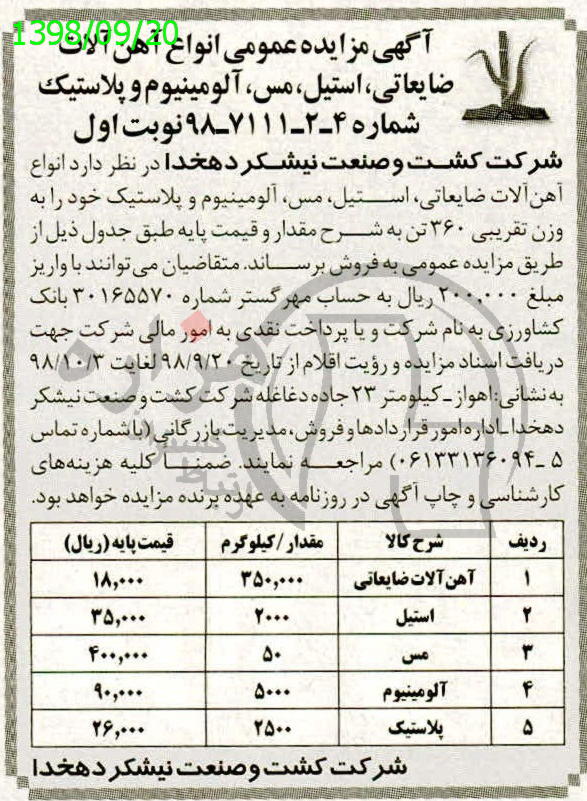 1398/09/20
آگهی مزایده عمومی انواع آهن آلات
ضایعاتی، استیل، مس، آلومینیوم و پلاستیک
شماره ۴-۲-۷۱۱۱-۹۸ نوبت اول
شرکت کشت و صنعت نیشکر دهخدا در نظر دارد انواع
آهن‌آلات ضایعاتی، استیل، مس، آلومینیوم و پلاستیک خود را به
وزن تقریبی ۳۶۰ تن به شرح مقدار و قیمت پایه طبق جدول ذیل از
طریق مزایده عمومی به فروش برساند. متقاضیان می‌توانند با واریز
مبلغ ۲۰۰,۰۰۰ ریال به حساب مهر گستر شماره ۳۰۱۶۵۵۷۰ بانک
کشاورزی به نام شرکت و یا پرداخت نقدی به امور مالی شرکت جهت
دریافت اسناد مزایده و رؤیت اقلام از تاریخ ۹۸/۹/۲۰ لغایت ۹۸/۱۰/۳
به نشانی: اهواز ـ کیلومتر ۲۳ جاده دغاغله شرکت کشت و صنعت نیشکر
دهخدا ـ اداره امور قراردادها و فروش، مدیریت بازرگانی (با شماره تماس
۵ ـ ۰۶۱۳۳۱۳۶۰۹۴) مراجعه نمایند. ضمنا کلیه هزینه‌های
کارشناسی و چاپ آگهی در روزنامه به عهده برنده مزایده خواهد بود.
ردیف شرح کالا مقدار/کیلوگرم قیمت پایه (ریال)
۱ آهن آلات ضایعاتی ۳۵۰,۰۰۰ ۱۸,۰۰۰
۲ استیل ۲۰۰۰ ۳۵,۰۰۰
۳ مس ۵۰ ۴۰۰,۰۰۰
۴ آلومینیوم ۵۰۰۰ ۹۰,۰۰۰
۵ پلاستیک ۲۵۰۰ ۲۶,۰۰۰
شرکت کشت و صنعت نیشکر دهخدا